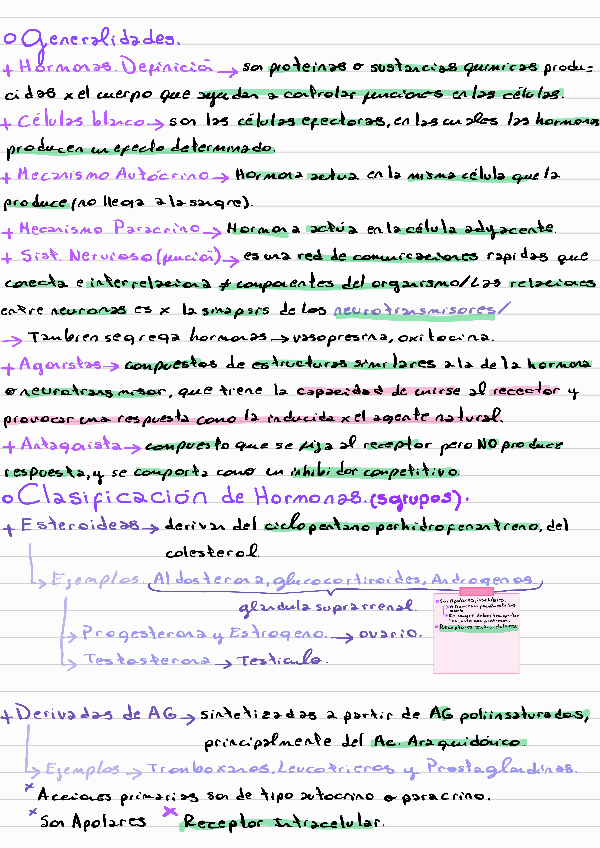 o Generalidades.
+ Hormonas. Definición → son proteinas o sustancias quimicas produ=
cidas x el cuerpo que ayudan a controlar funciones en las células.
+ Células blanco → son las células efectoras, en las cuales las hormonas
producen un efecto determinado.
+ Mecanismo Autócrino → Hormona actua en la misma célula que la
produce (no llega a la sangre).
+ Mecanismo Paracrino → Hormona actúa en la célula adyacente.
+ Sist. Nervioso (función) → es una red de comunicaciones rapidas que
conecta e interrelaciona ≠ componentes del organismo/Las relaciones
entre neuronas es x la sinapsis de los neurotransmisores/
→ Tambien segrega hormonas → vasopresina, oxitocina.
+ Agonistas → compuestos de estructuras similares a la de la hormona
o neurotransmisor, que tiene la capacidad de unirse al receptor y
provocar una respuesta como la inducida x el agente natural.
+ Antagonista → compuesto que se fija al receptor pero NO produce
respuesta, y se comporta como un inhibidor competitivo.
o Clasificación de Hormonas. (5grupos).
+ Esteroideas → derivan del ciclopentano perhidrofenantreno, del
colesterol
↳ Ejemplos. Aldosterona, glucocortiroides, Androgenos
glandula suprarrenal
↳ Progesterona y Estrogeno. → ovario.
↳ Testosterona → Testiculo.
+ Derivadas de AG → sintetizadas a partir de AG poliinsaturados,
principalmente del Ac. Araquidónico.
↳ Ejemplos → Tromboxanos, Leucotrienos y Prostaglandinas.
x Acciones primarias son de tipo autocrino o paracrino.
x Son Apolares x Receptor Intracelular.